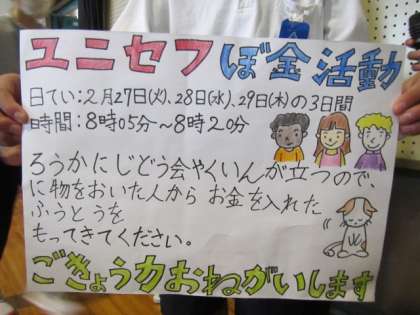 ユニセフぼ金活動
日てい:2月27日(火)、28日(水)、29日(木)の3日間
時間:8時05分～8時20分
ろうかにじどう会やくいんが立つので、
に物をおいた人から お金を入れた
ふうとうを
もってきてください。
ごきょう力おねがいします